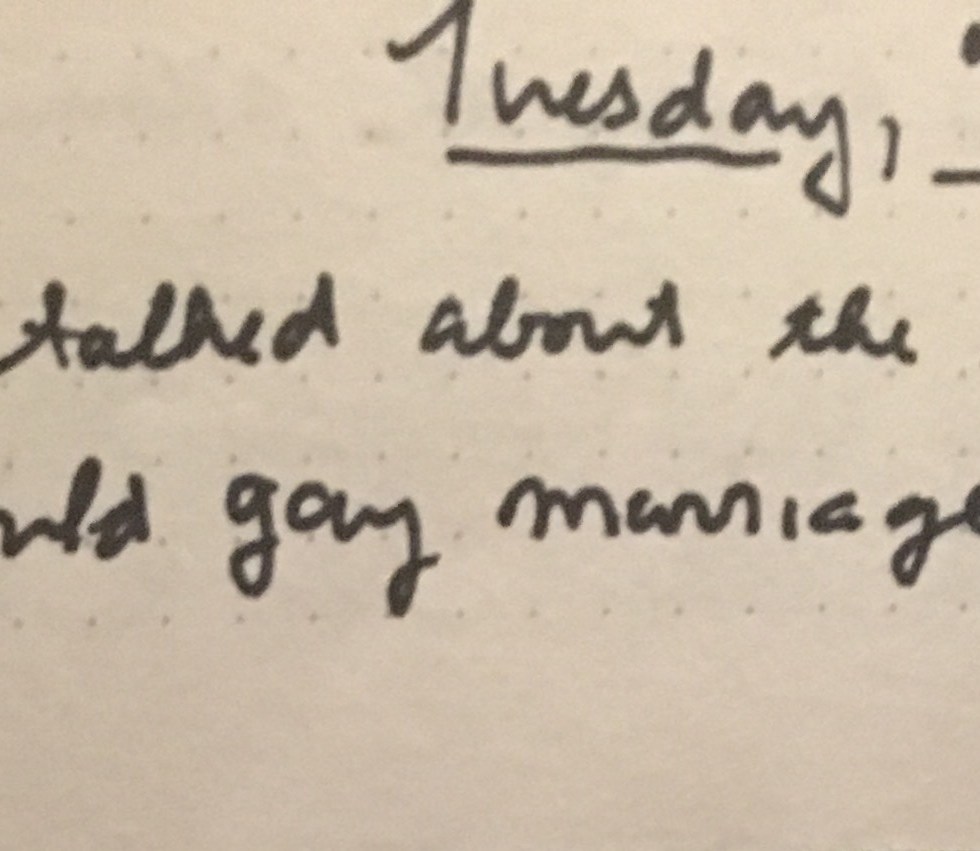 Tuesday,
talked about the
uld gay marriage